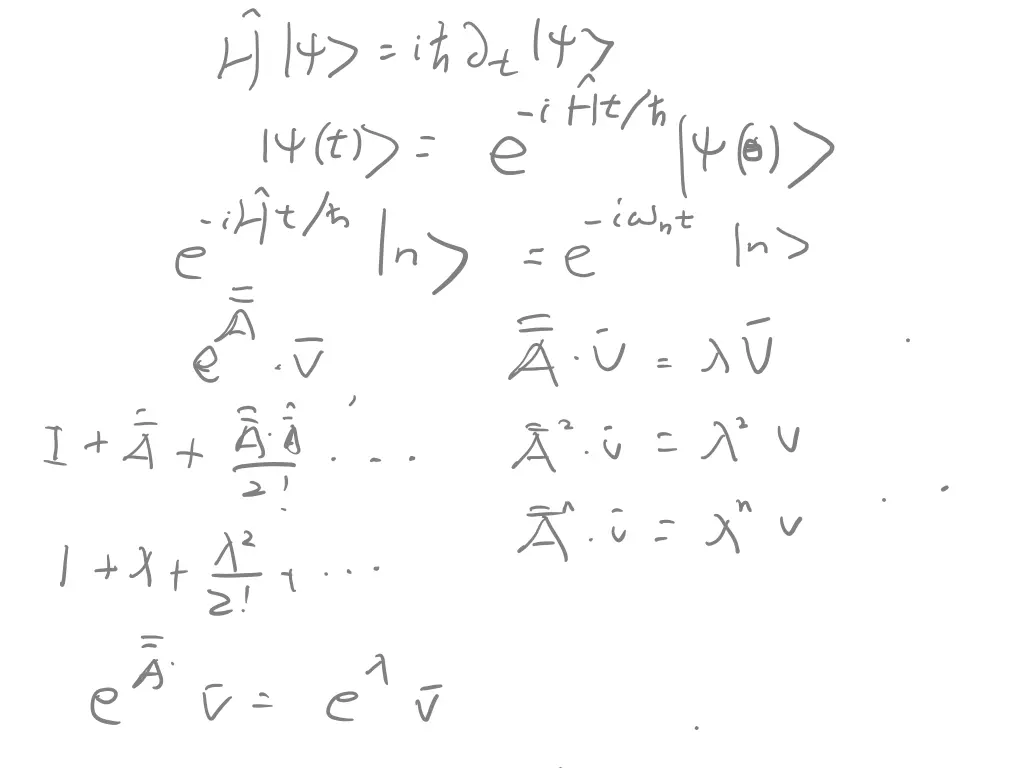 Ĥ |ψ> = iħ ∂_t |ψ>
|ψ(t)> = e^{-iĤt/ħ} |ψ(0)>
e^{-iĤt/ħ} |n> = e^{-iω_n t} |n>
e^{A̿} · v̄
A̿ · v̄ = λ v̄
I + A̿ + A̿·A̿/2! ...
A̿² · v̄ = λ² v
A̿ⁿ · v̄ = λⁿ v
1 + λ + λ²/2! + ...
e^{A̿·} v̄ = e^λ v̄